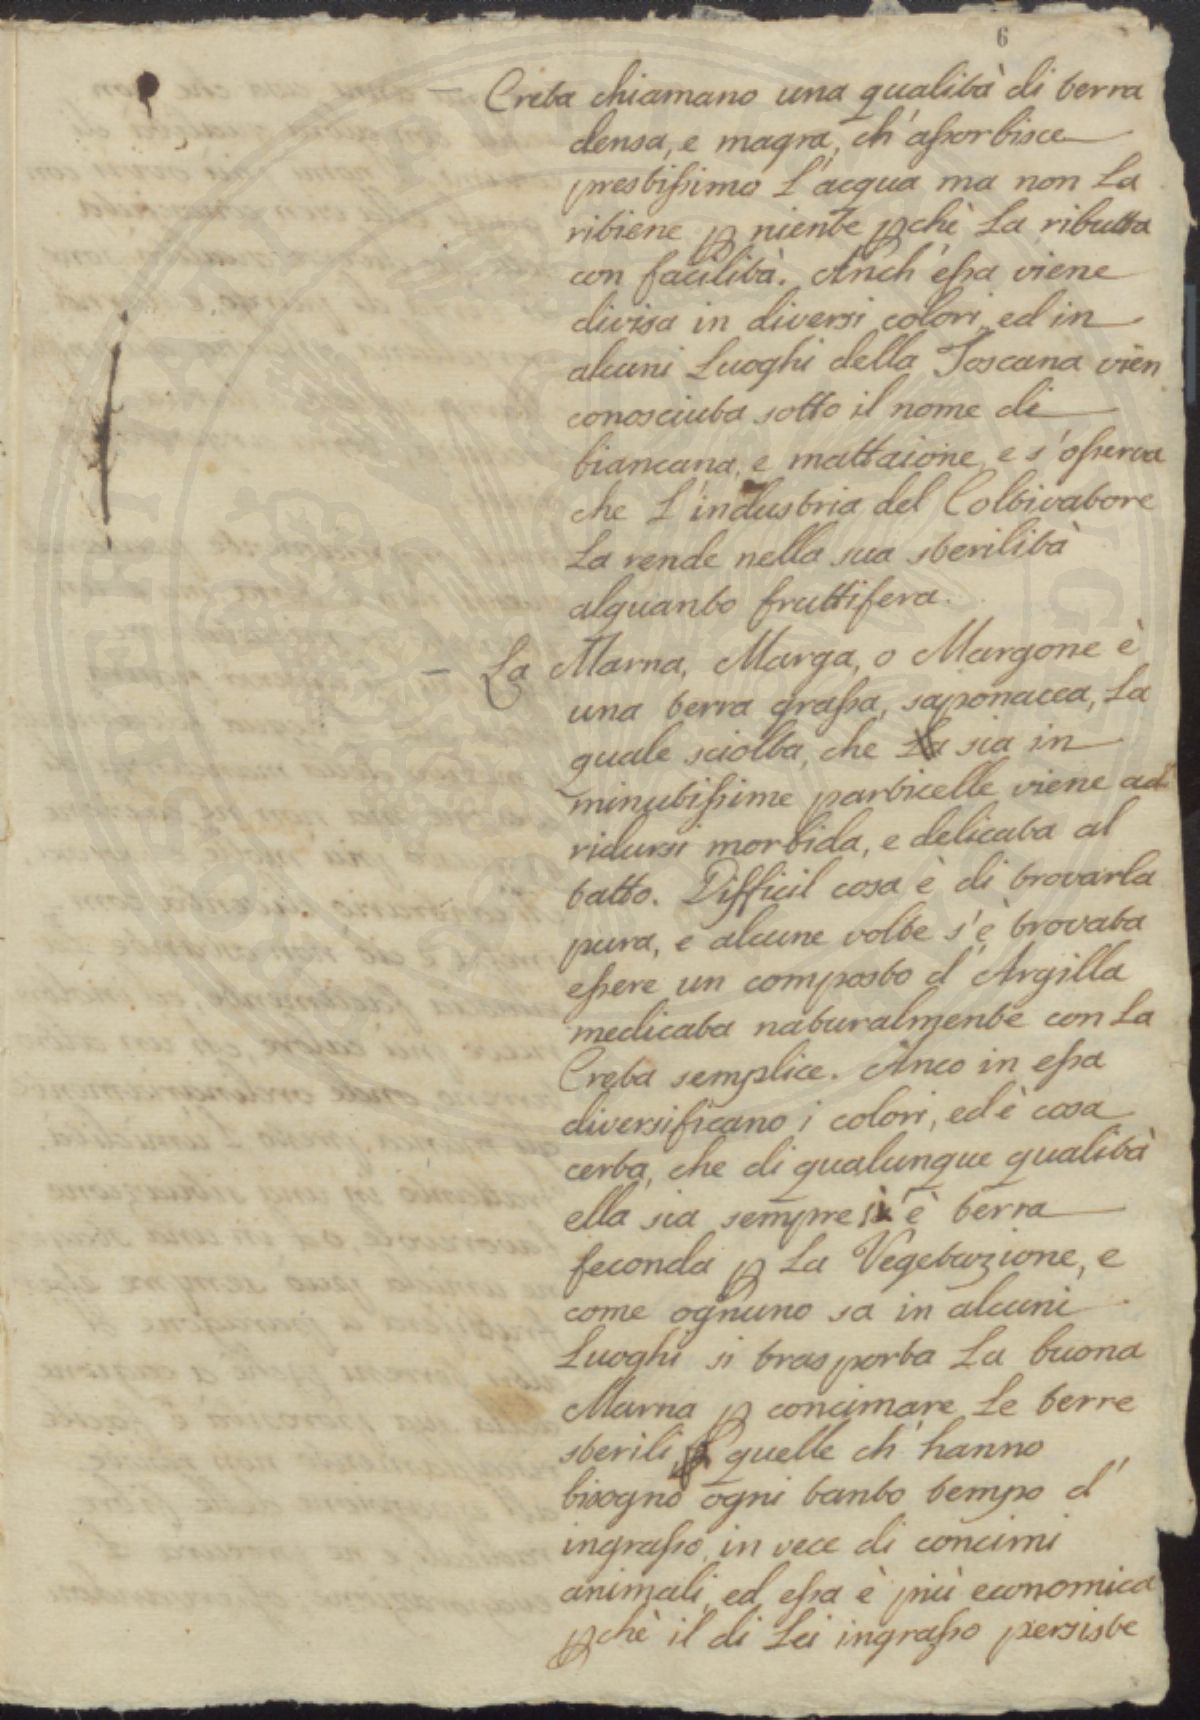 6
– Creta chiamano una qualità di terra
densa, e magra, ch'assorbisce
prestissimo l'acqua ma non la
ritiene p niente pchè la ributta
con facilità. Anch'essa viene
divisa in diversi colori, ed in
alcuni Luoghi della Toscana vien
conosciuta sotto il nome di
biancana, e mattaione, e s'osserva
che l'industria del Coltivatore
la rende nella sua sterilità
alquanto fruttifera.
– La Marna, Marga, o Margone è
una terra grassa, saponacea, la
quale sciolta, che sia in
minutissime particelle viene ad
ridursi morbida, e delicata al
tatto. Difficil cosa è di trovarla
pura, e alcune volte s'è trovata
essere un composto d'Argilla
medicata naturalmente con la
Creta semplice. Anco in essa
diversificano i colori, ed è cosa
certa, che di qualunque qualità
ella sia sempre è terra
feconda p la Vegetazione, e
come ognuno sa in alcuni
Luoghi si trasporta la buona
Marna p concimare le terre
sterili, quelle ch'hanno
bisogno ogni tanto tempo d'
ingrasso, in vece di concimi
animali, ed essa è più economica
pchè il di Lei ingrasso persiste